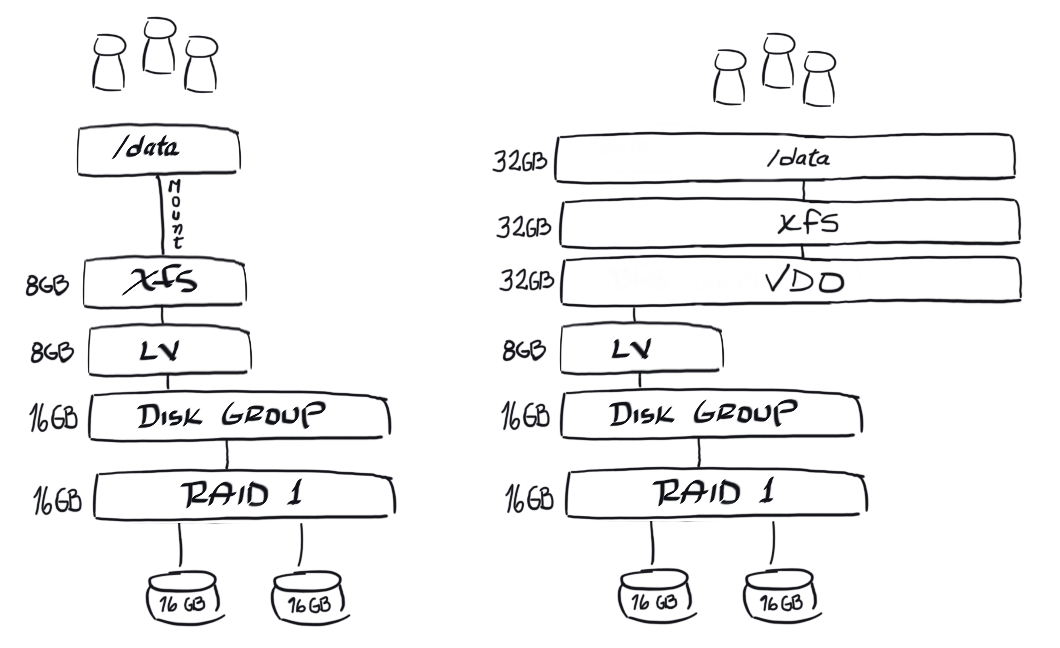 /data
Mount
8GB xfs
8GB LV
16GB Disk GROUP
16GB RAID 1
16 GB 16 GB
32GB /data
32GB xfs
32GB VDO
8GB LV
16GB Disk GROUP
16GB RAID 1
16 GB 16 GB